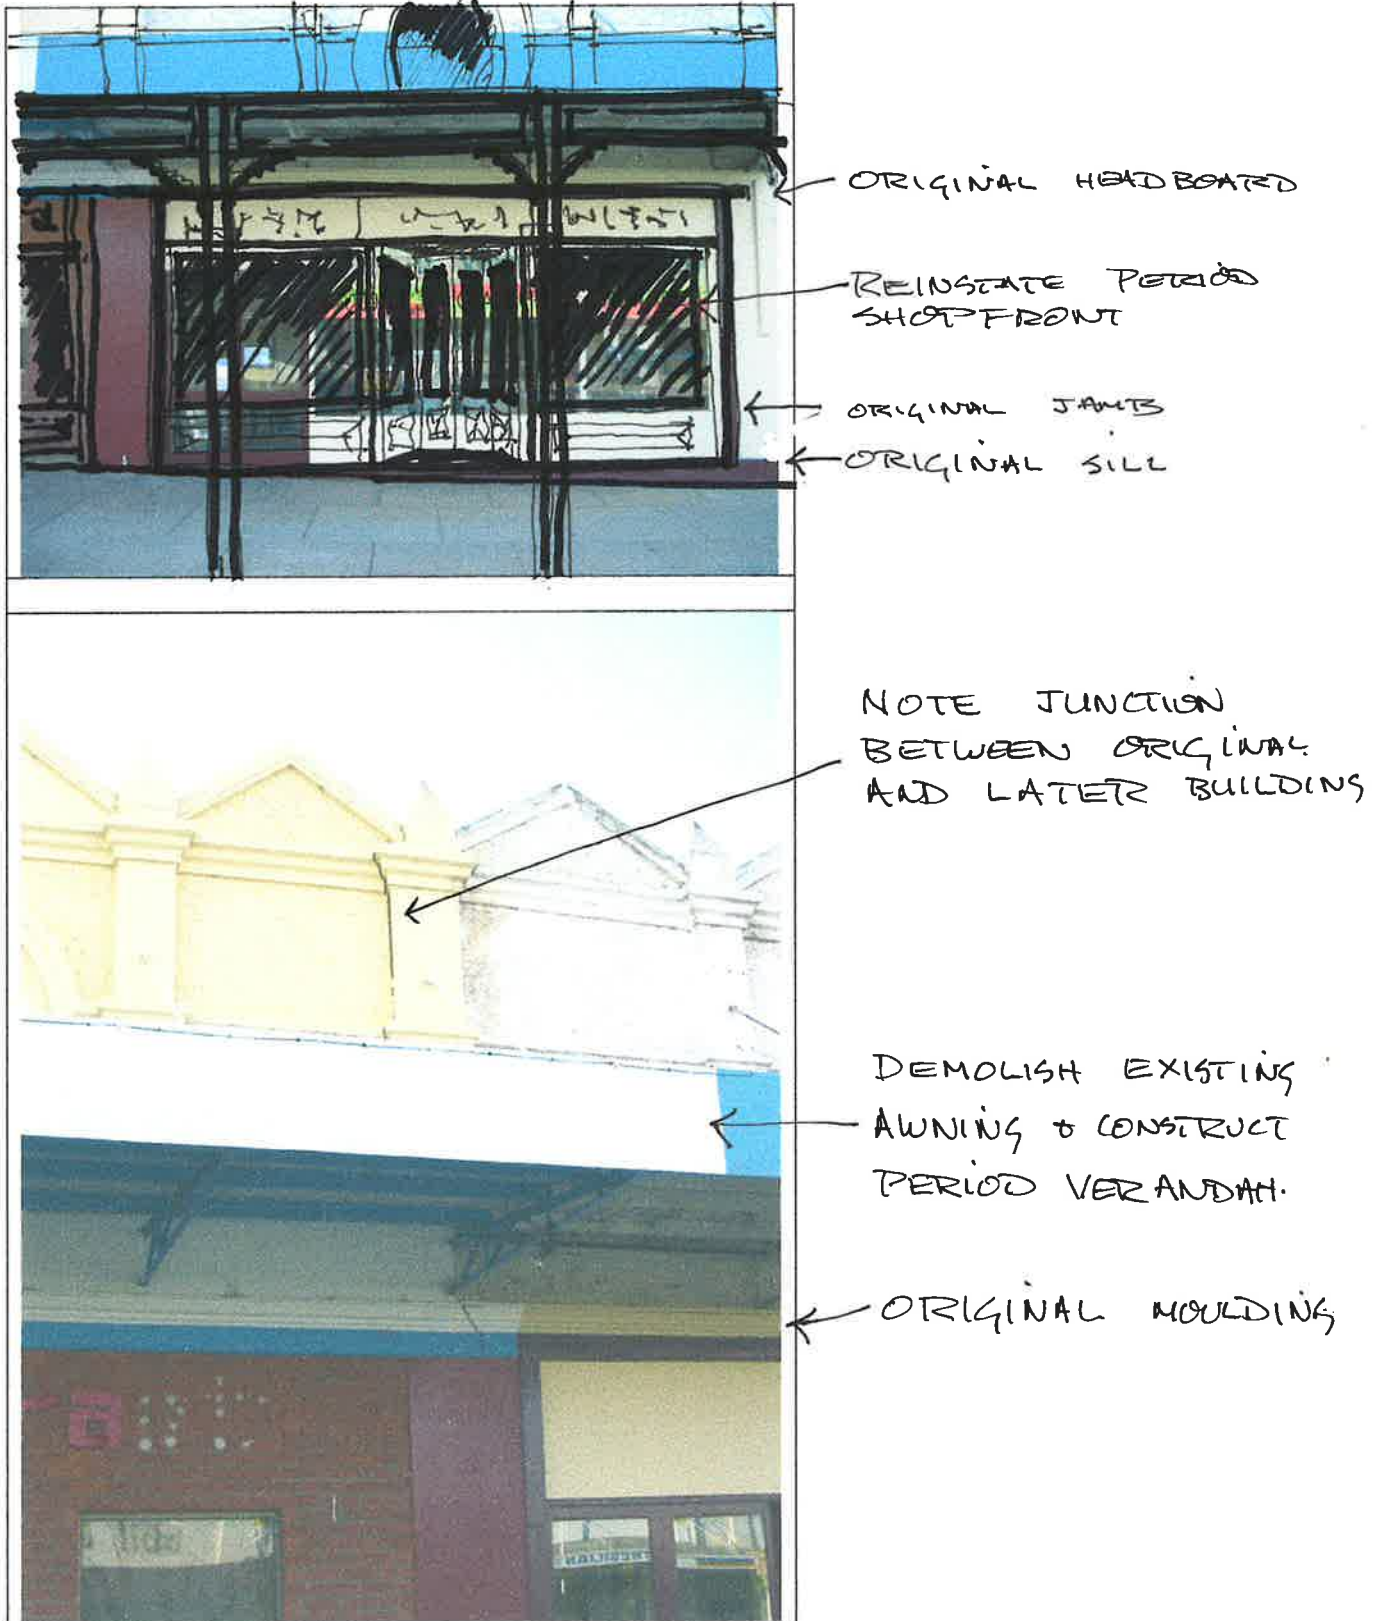 ORIGINAL HEADBOARD
REINSTATE PERIOD
SHOPFRONT
ORIGINAL JAMB
ORIGINAL SILL
NOTE JUNCTION
BETWEEN ORIGINAL
AND LATER BUILDING
DEMOLISH EXISTING
AWNING & CONSTRUCT
PERIOD VERANDAH.
ORIGINAL MOULDING